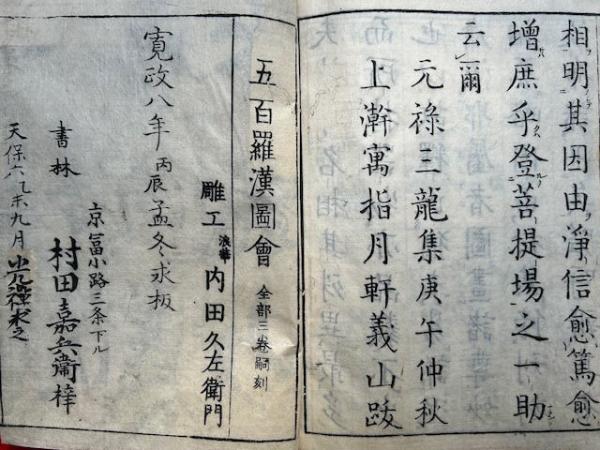 相明其因由淨信愈篤愈
增庶乎登菩提場之一助
云爾
元祿三龍集庚午仲秋
上澣寓指月軒義山跋
五百羅漢圖會 全部三卷嗣刻
雕工 浪華 内田久左衛門
寛政八年丙辰孟冬求板
京冨小路三条下ル
書林 村田嘉兵衛梓
天保六乙未九月 求之